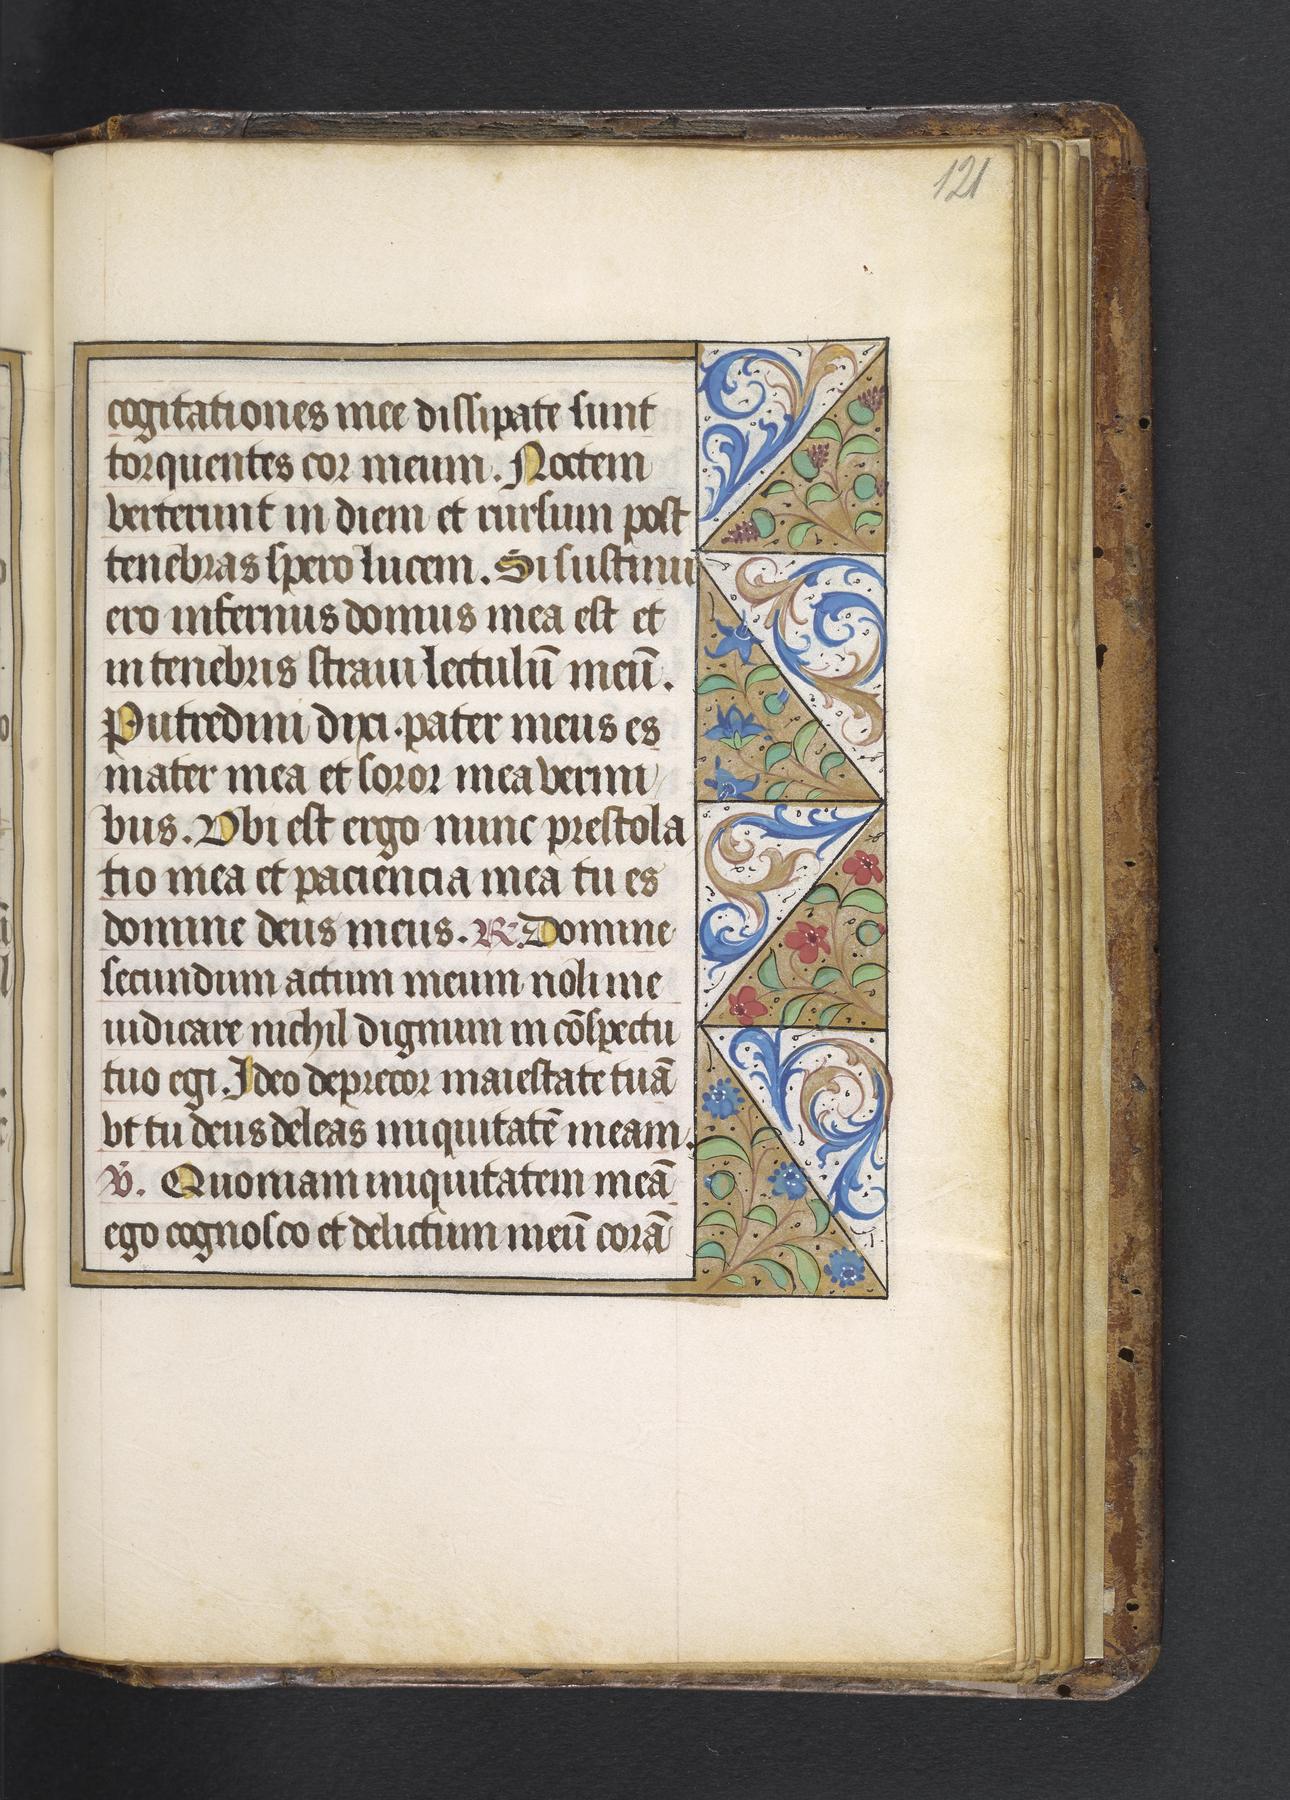 121
cogitationes mee dissipate sunt
torquentes cor meum. Noctem
verterunt in diem et rursum post
tenebras spero lucem. Si sustinu
ero infernus domus mea est et
in tenebris straui lectulū meū.
Putredini dixi. pater meus es
mater mea et soror mea vermi
bus. Vbi est ergo nunc prestola
tio mea et paciencia mea tu es
domine deus meus. R. Domine
secundum actum meum noli me
iudicare nichil dignum in cōspectu
tuo egi. Ideo deprecor maiestatē tuā
vt tu deus deleas iniquitatē meam.
V. Quoniam iniquitatem meā
ego cognosco et delictum meū corā